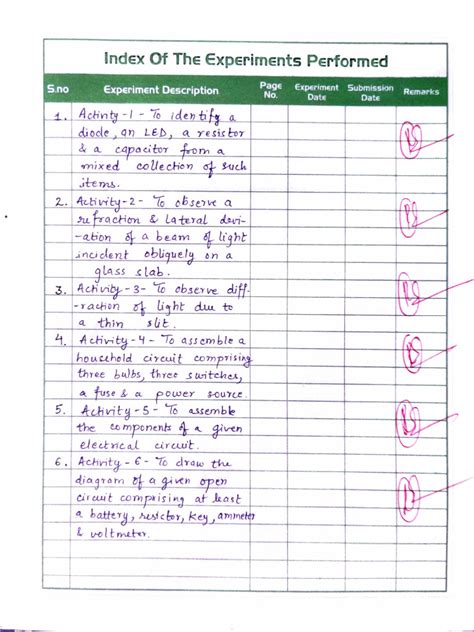 Index Of The Experiments Performed
S.no Experiment Description Page No. Experiment Date Submission Date Remarks
1. Activity-1- To identify a
diode, an LED, a resistor
& a capacitor from a
mixed collection of such
items.
2. Activity-2- To observe a
refraction & lateral devi-
-ation of a beam of light
incident obliquely on a
glass slab.
3. Activity-3- To observe diff-
-raction of light due to
a thin slit.
4. Activity-4- To assemble a
household circuit comprising
three bulbs, three switches,
a fuse & a power source.
5. Activity-5- To assemble
the components of a given
electrical circuit.
6. Activity-6- To draw the
diagram of a given open
circuit comprising at least
a battery, resistor, key, ammeter
& voltmeter.